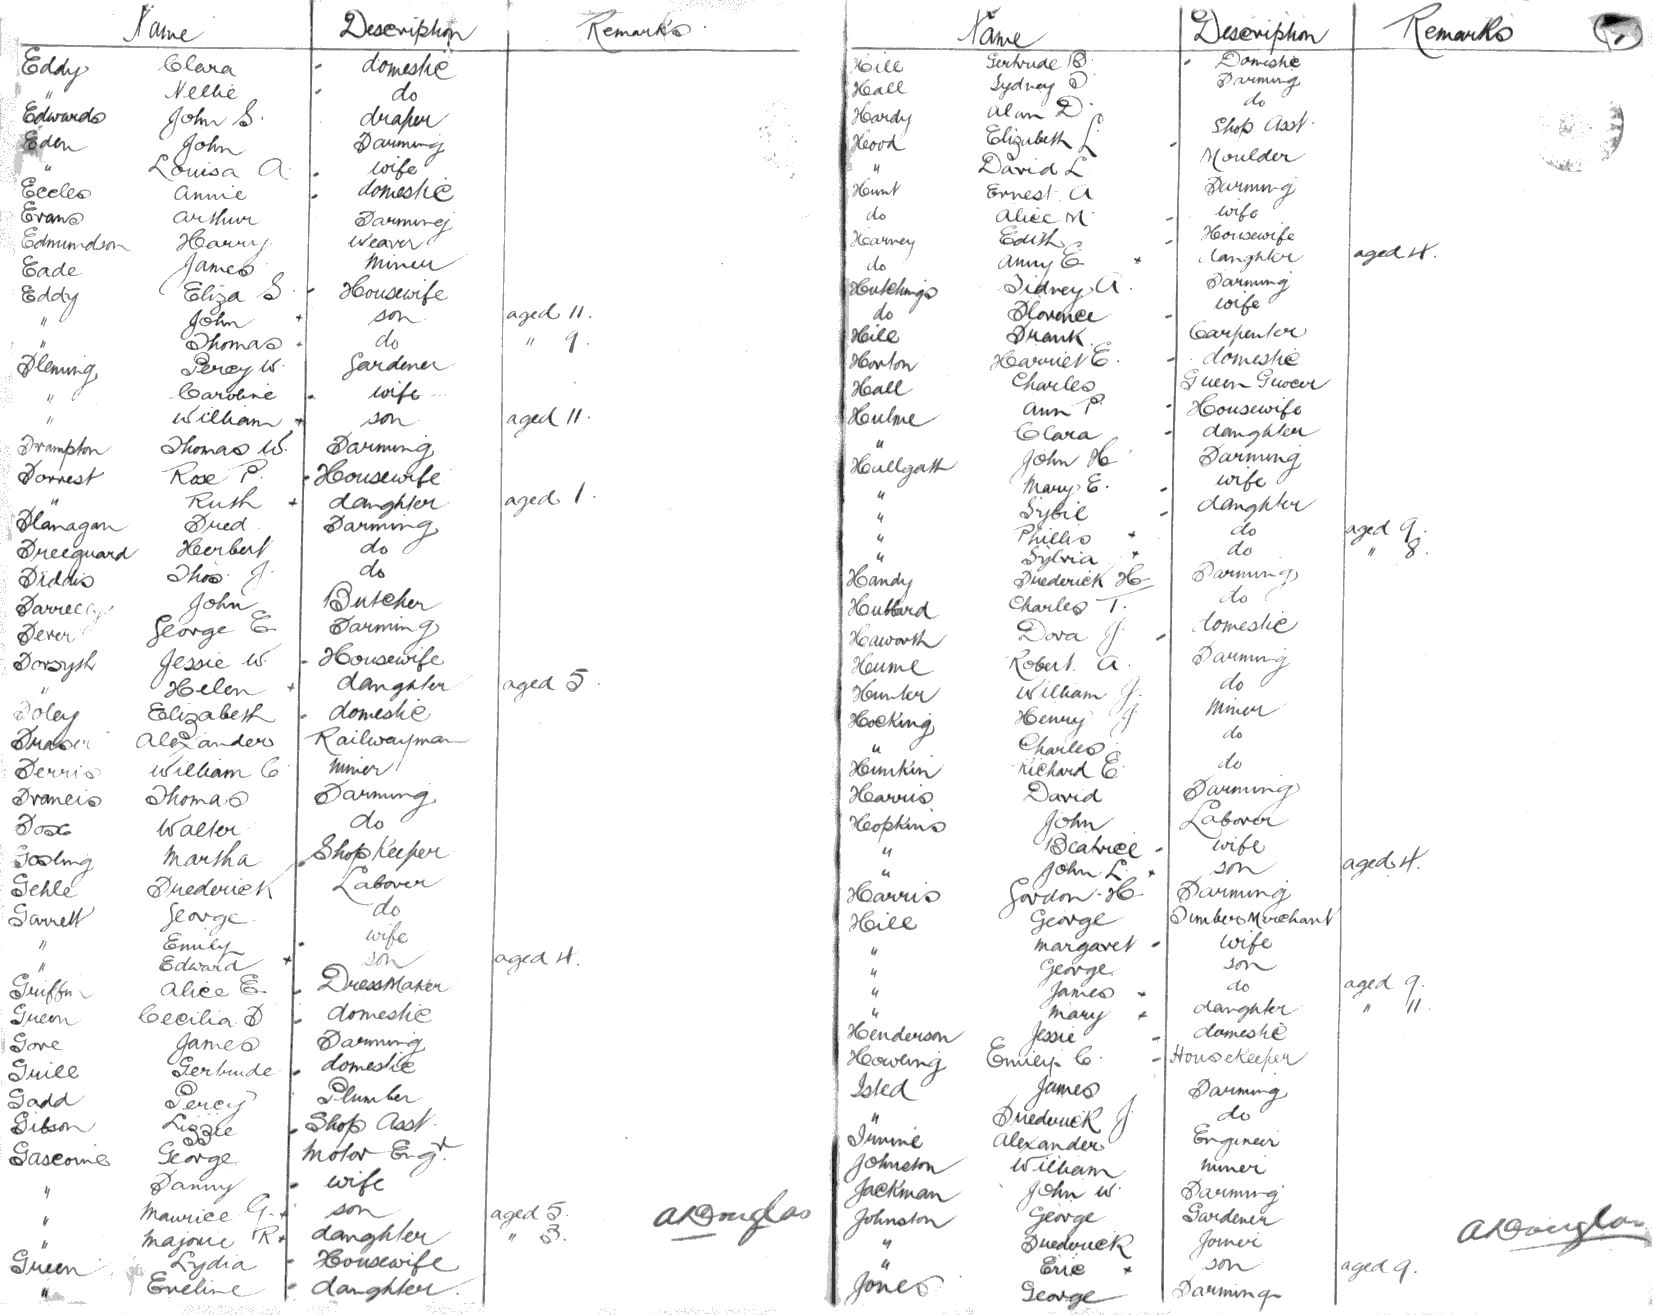 Name Description Remarks
Eddy Clara domestic
" Nellie do
Edwards John S. draper
Eden John Farming
" Louisa A. wife
Eccles Annie domestic
Evans Arthur Farming
Edmundson Harry Weaver
Eade James Miner
Eddy Eliza S. Housewife
" John son aged 11.
" Thomas do " 9.
Fleming Percy W. Gardener
" Caroline wife
" William son aged 11.
Frampton Thomas W. Farming
Forrest Rose P. Housewife
" Ruth daughter aged 1.
Flanagan Fred Farming
Freeguard Herbert do
Fiddis Thos. J. do
John Butcher
Fever George E Farming
Forsyth Jessie W. Housewife
" Helen daughter aged 5.
Foley Elizabeth domestic
Fraser Alexander Railwayman
Ferris William C miner
Francis Thomas Farming
Fox Walter do
Gosling Martha Shop Keeper
Gehle Frederick Laborer
Garrett George do
" Emily wife
" Edward son aged 4.
Griffin Alice E. Dress Maker
Green Cecilia F domestic
Gore James Farming
Grill Gertrude domestic
Gadd Percy Plumber
Gibson Lizzie Shop Asst.
Gascoine George Motor Engr.
" Fanny wife
" Maurice G. son aged 5.
" Majorie R daughter " 3.
Green Lydia Housewife
" Eveline daughter.
A R Douglas
Name Description Remarks
Hill Gertrude B. Domestic
Hall Sydney F Farming
Hardy Alan D. do
Hood Elizabeth L Shop Asst.
" David L Moulder
Hunt Ernest A Farming
do Alice M. wife
Harney Edith Housewife
do Anny E daughter aged 4.
Hutchings Sidney A. Farming
do Florence wife
Hill Frank Carpenter
Horton Harriet E. domestic
Hall Charles Green Grocer
Hulme Ann P. Housewife
" Clara daughter
Hallgath John H Farming
" Mary E. wife
" Sybil daughter
" Phillis do aged 9.
" Sylvia do " 8.
Handy Frederick H Farming
Hubbard Charles T. do
Haworth Dora J. domestic
Hume Robert A. Farming
Hunter William J. do
Hocking Henry J Miner
" Charles do
Hunkin Richard E do
Harris David Farming
Hopkins John Laborer
" Beatrice wife
" John L. son aged 4.
Harris Gordon H Farming
Hill George Timber Merchant
" Margaret wife
" George son
" James do aged 9.
" Mary daughter " 11.
Henderson Jessie domestic
Howling Emily C. Housekeeper
Isted James Farming
" Frederick J do
Irvine Alexander Engineer
Johnston William miner
Jackman John W. Farming
Johnston George Gardener
" Frederick Joiner
" Eric son aged 9.
Jones George Farming
A R Douglas